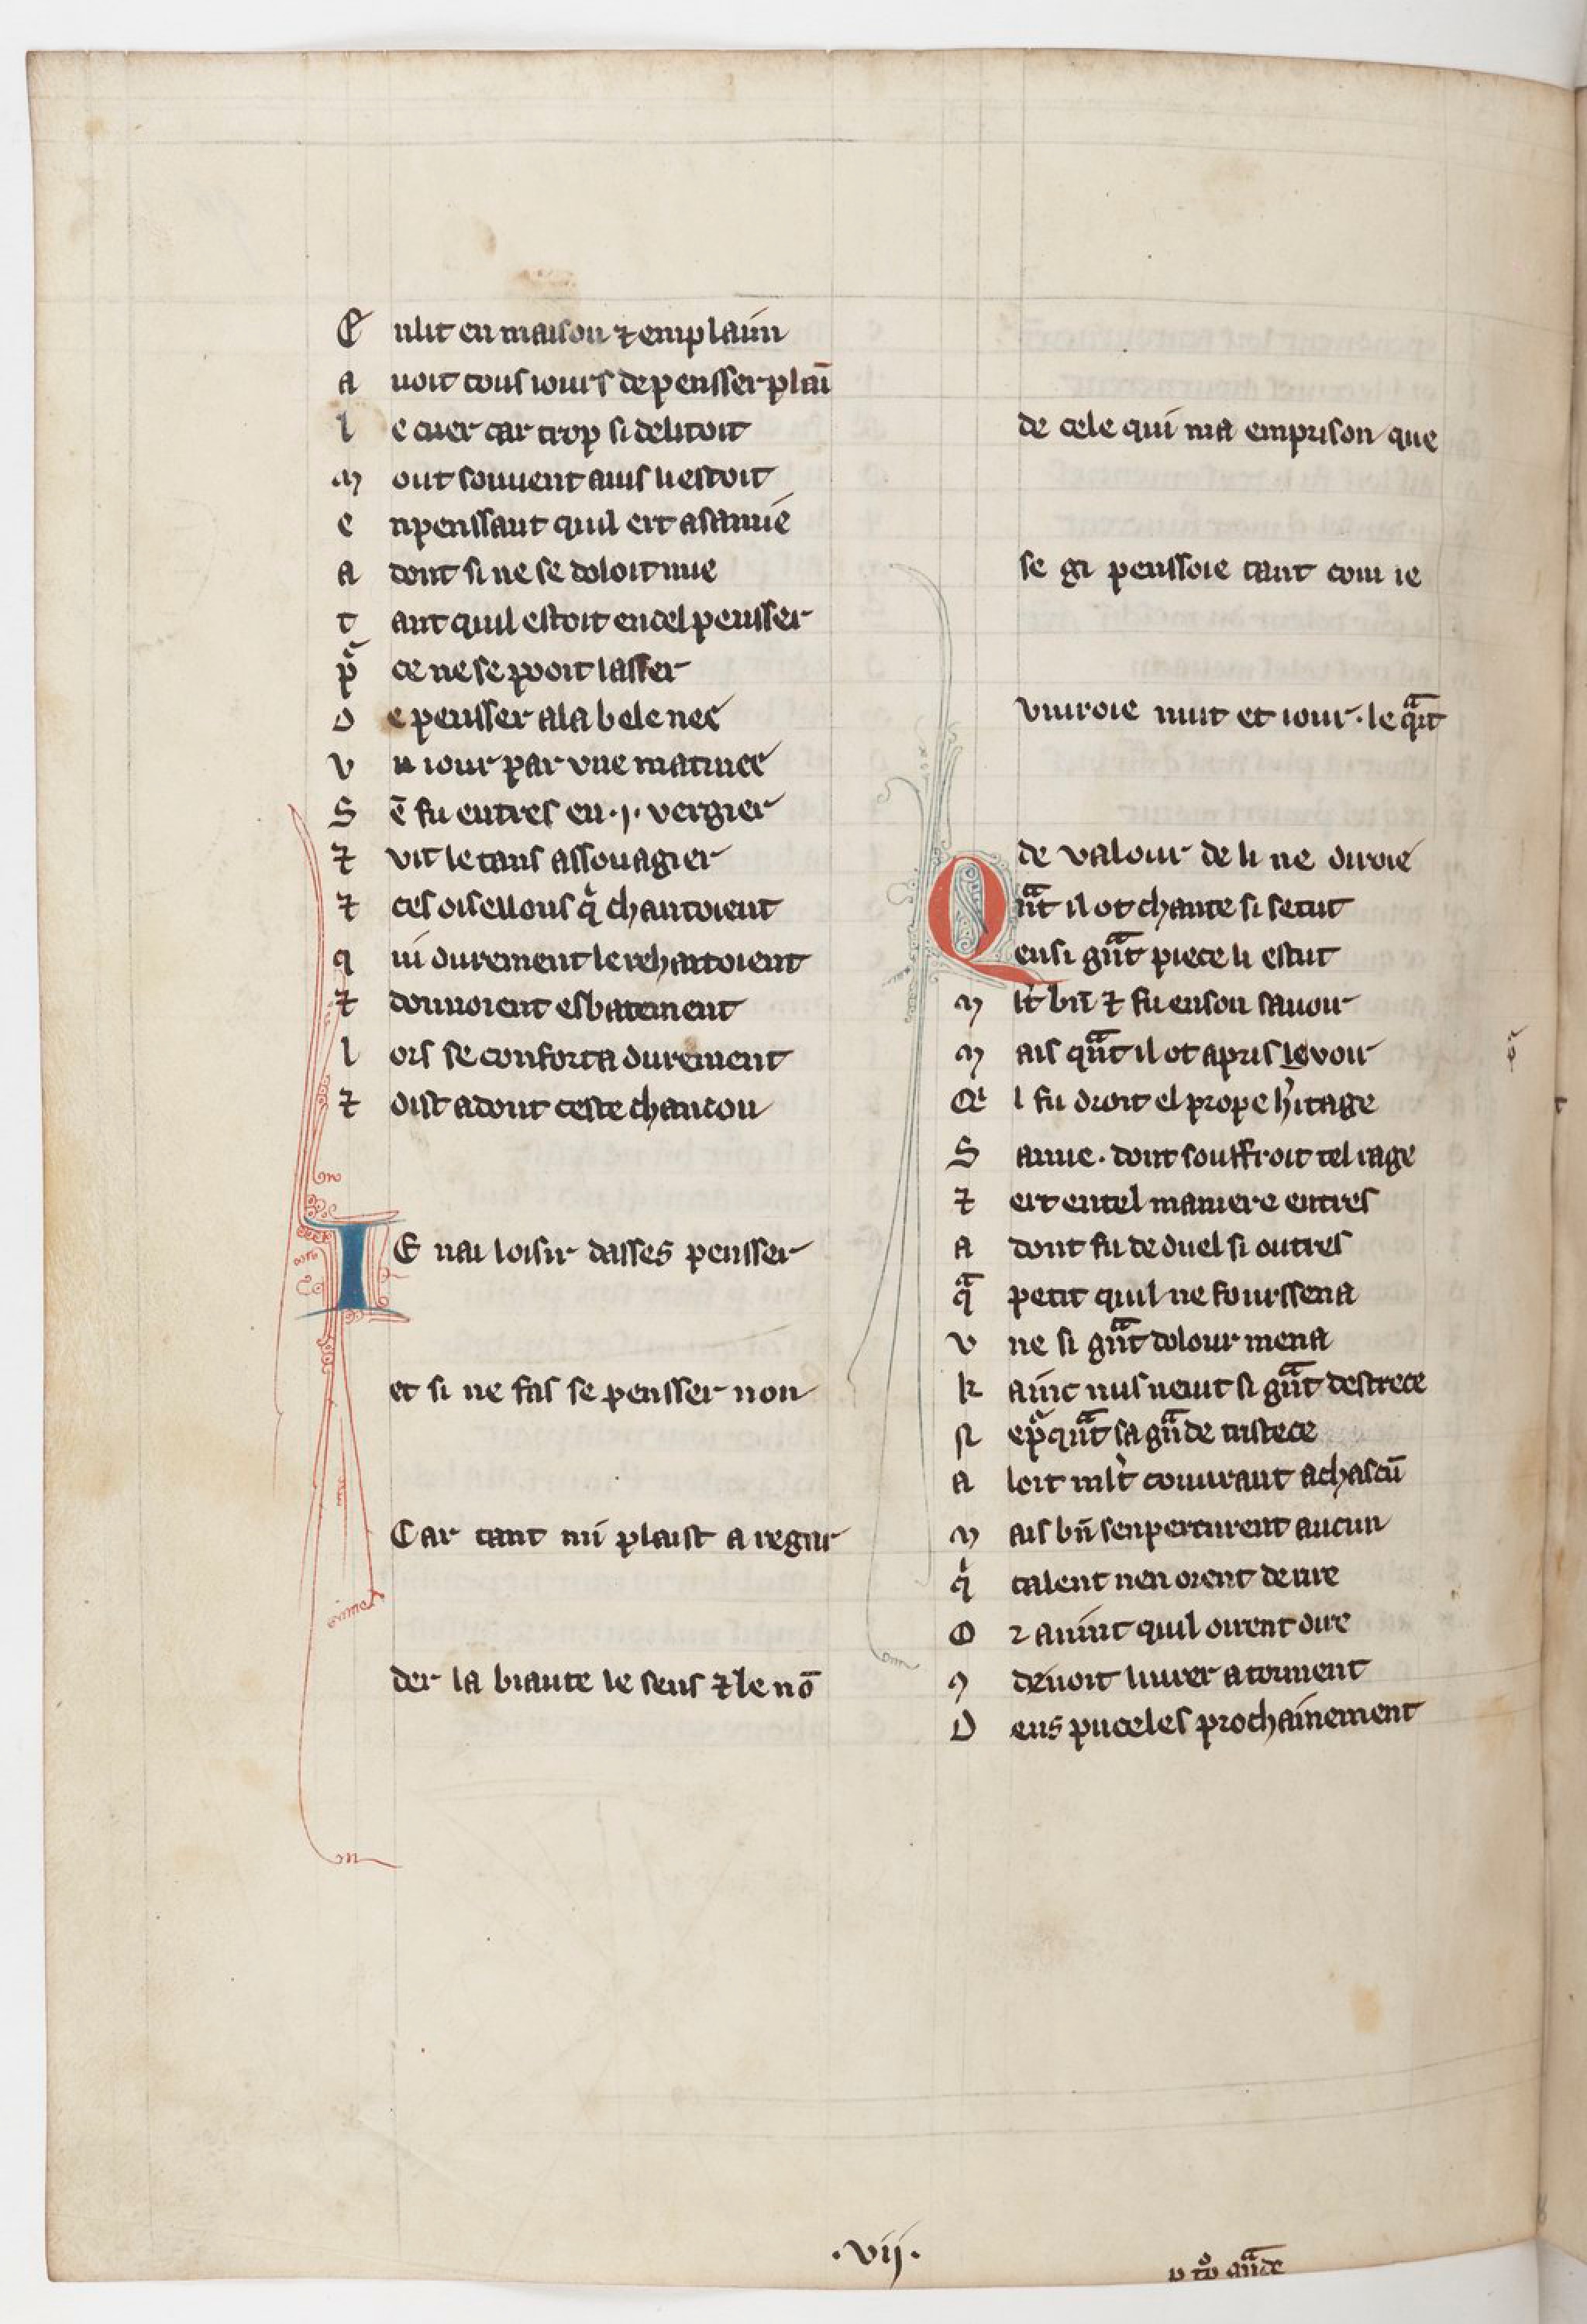 E nlit en maison ⁊ emplain
a uoit tous iours de pensser plaī
l e cuer car trop si delitoit
m out souuent auis li estoit
e npenssant quil ert asamie
a dont si ne se doloit mie
t ant quil estoit en cel pensser
p̾ ce ne se pooit lasser
D e pensser ala bele nee
v n iour par vne matinee
S ē fu entres en .j. vergier
⁊ vit le tans assouagier
⁊ ces oiseillons q̍ chantoient
q ui durement le rehaitoient
⁊ donnoient esbatement
l ors se conforta durement
⁊ dist adont ceste chancon
IE nai loisir dasses pensser
et si ne fas se pensser non
Car tant mi plaist a regar
der la biaute le sens ⁊ le nō
de cele qui ma em prison que
se gi penssoie tant com ie
viuroie nuit et iour . le qᷓnt
de valour de li ne diroie
Qnᷓt il ot chante si se tut
ensi gnᷓt piece li estut
m lt bn̄ ⁊ fu en son sauoir
m ais qnᷓt il ot apris le voir
Q̍ l fu droit el propre h̾itage
S amie . dont souffroit tel rage
⁊ ert en tel maniere entres
a dont fu de duel si outres
qᷓ petit quil ne fourssena
v ne si gnᷓt dolour mena
k ainc nus ne uit si gnᷓt destrece
N ep̾qnᷓt sa gnᷓde tristece
a loit ml̄t couurant a chascū
m ais bn̄ sen percurent aucun
q̍ talent nen orent de rire
O r auint quil oirent dire
9 deuoit liurer a torment
D eus puceles prochainement
.vij.